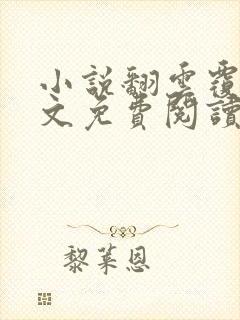 小說翻雲覆
文免費閱讀
黎萊恩